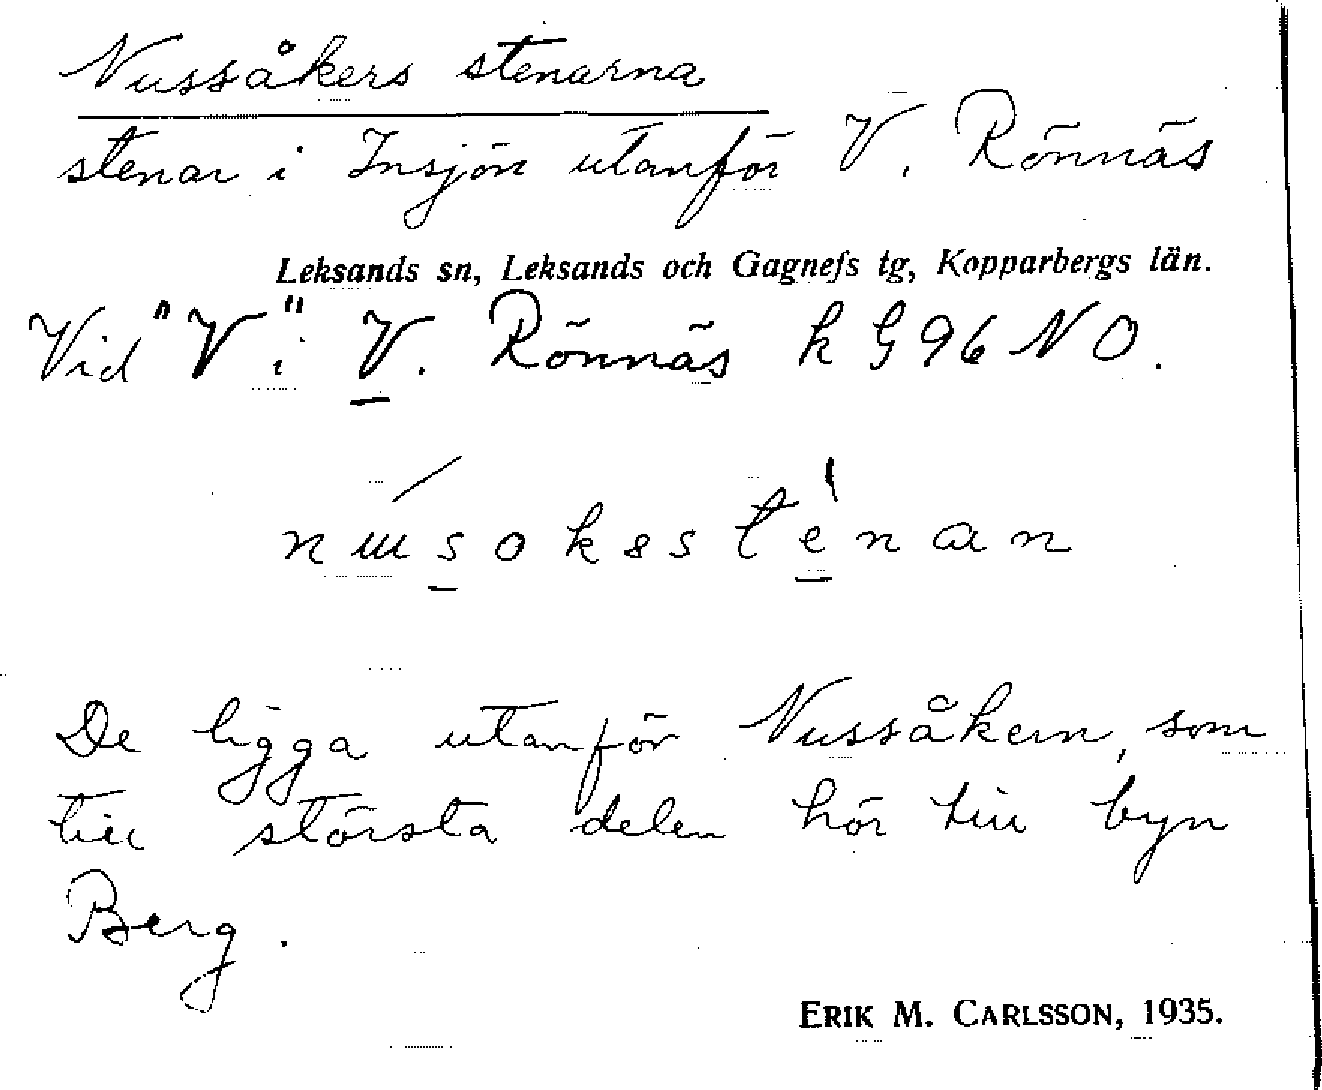 Nussåkers stenarna
stenar i Insjön utanför V. Rönnäs
Leksands sn, Leksands och Gagnefs tg, Kopparbergs län.
Vid "V" i V. Rönnäs k G 96 NO.
De ligga utanför Nussåkern, som
till största delen hör till byn
Berg.
ERIK M. CARLSSON, 1935.